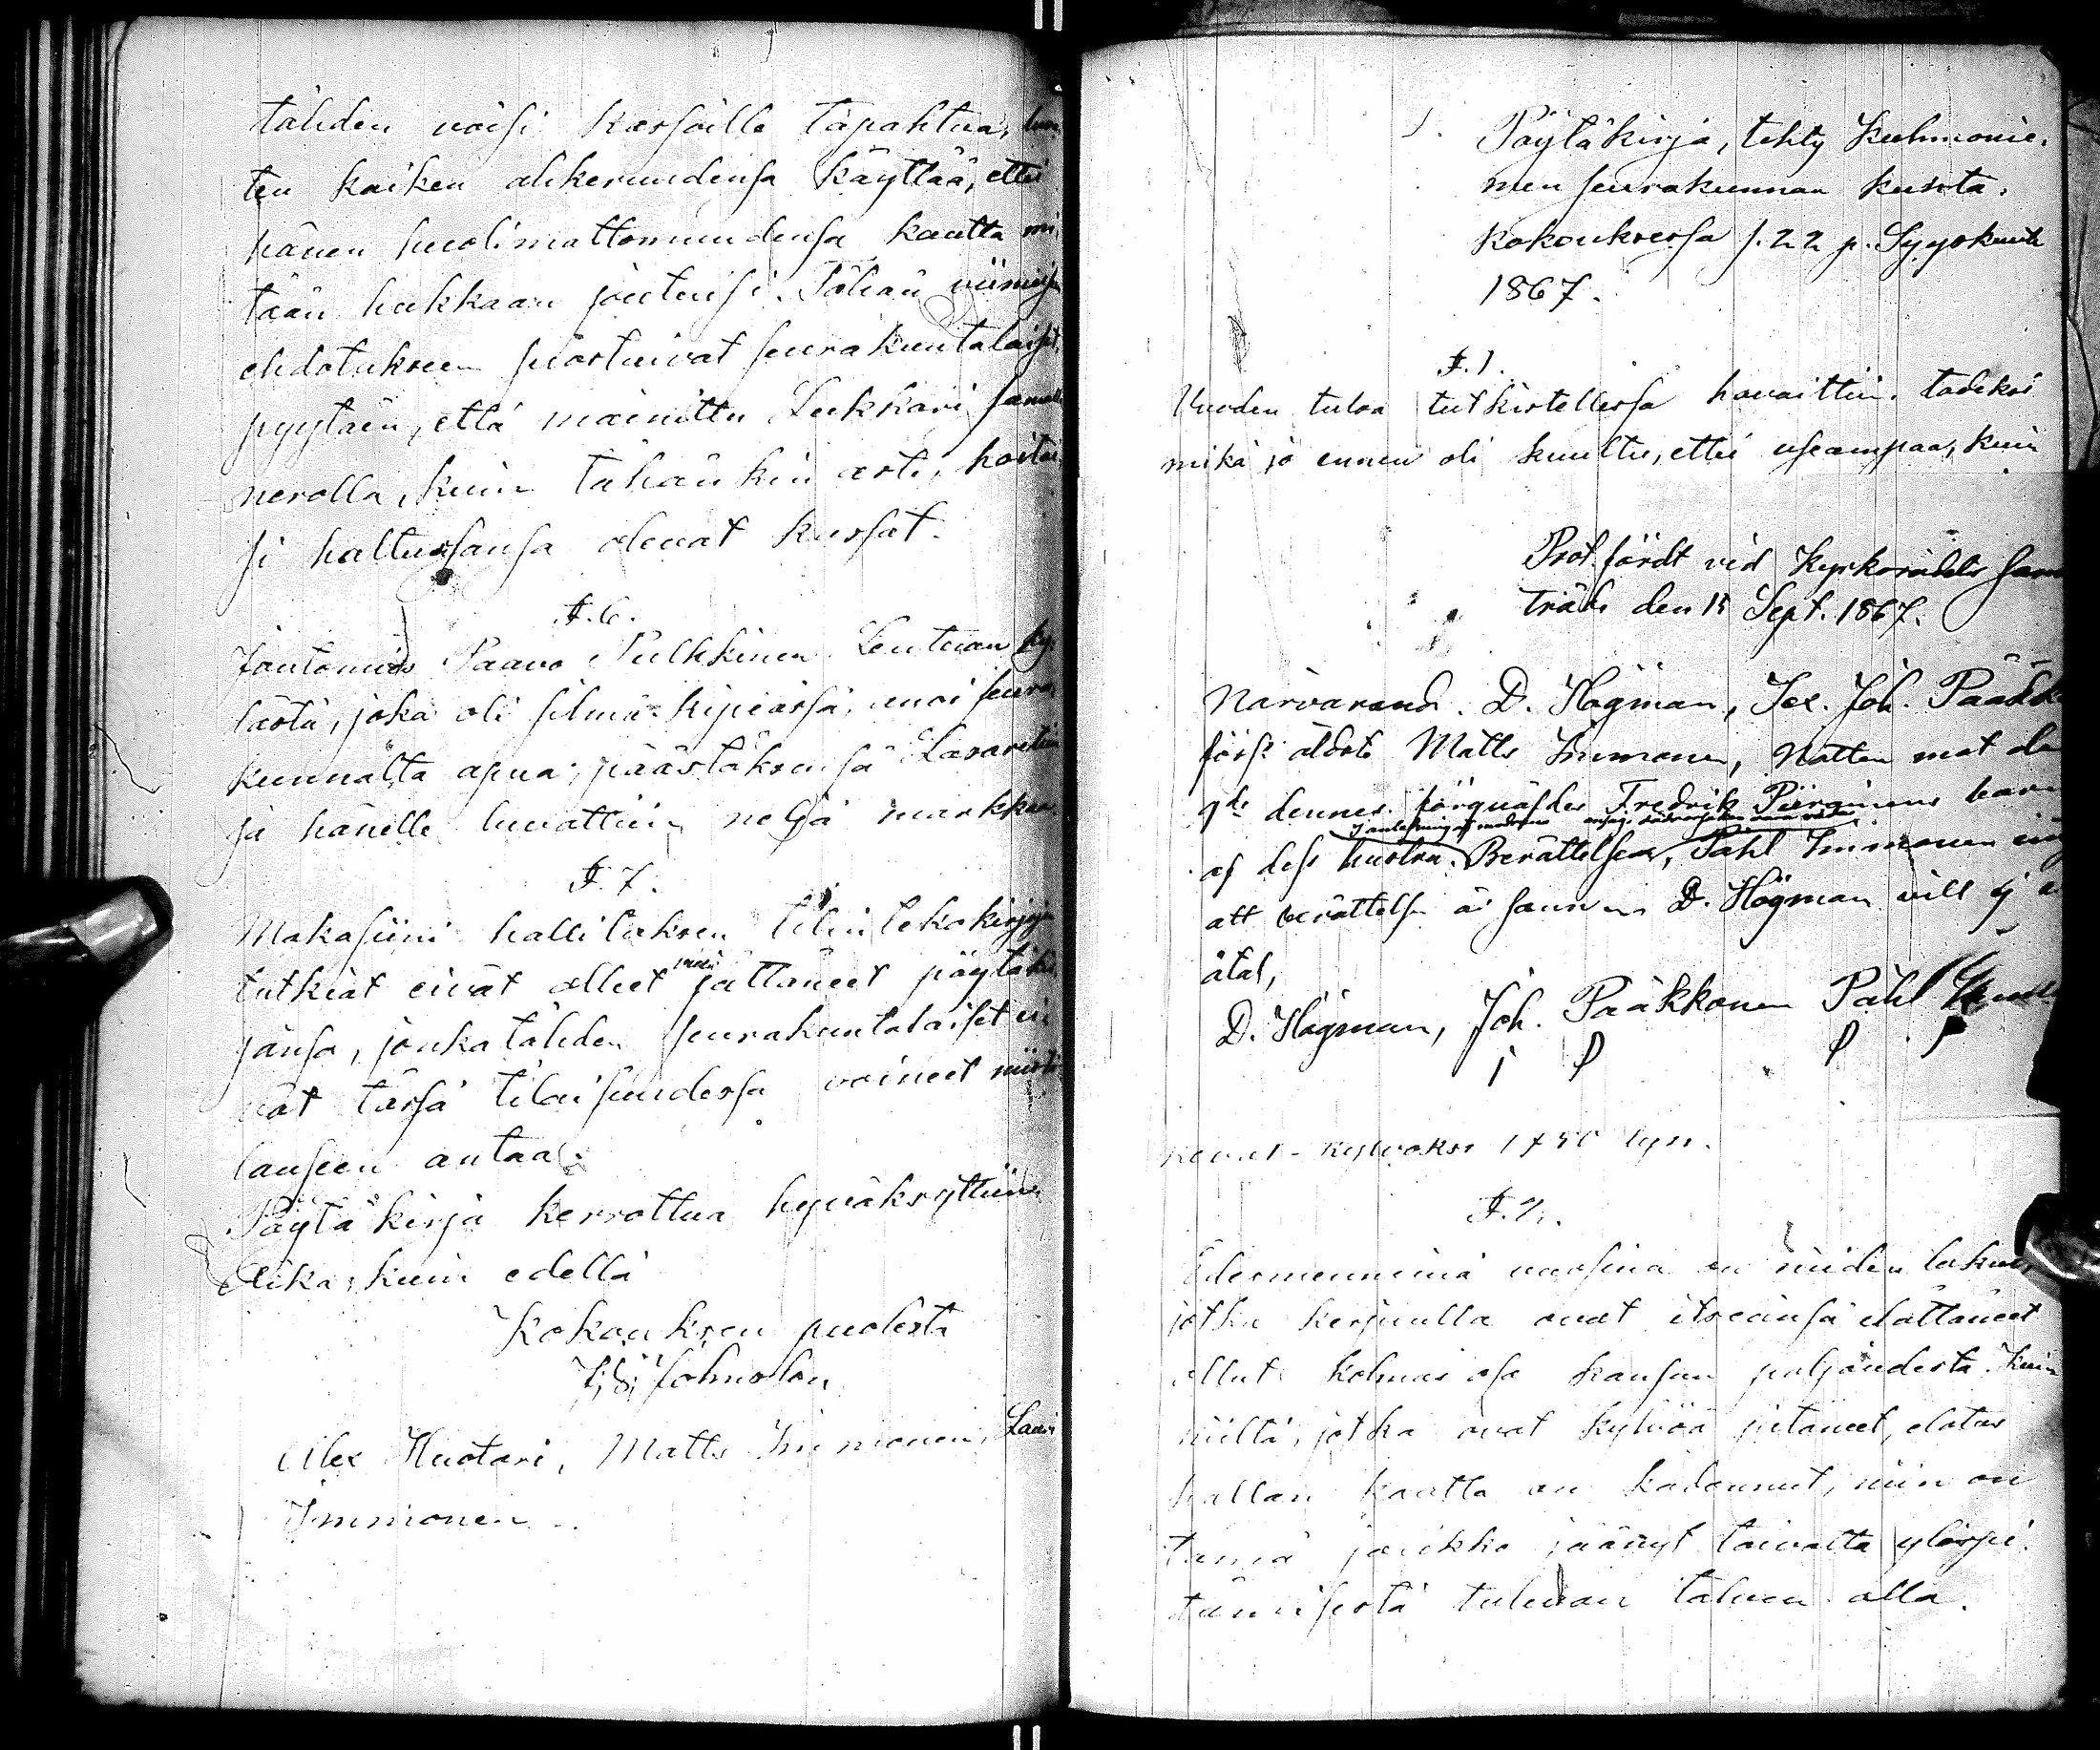 tähden voisi kassoille tapahtua,
ten kaiken ahkeruudensa käyttää, ettei
hänen huolimattomuudensa kautta mi
tään hukkaan joutuisi. Tähän viimeisen
ehdotukseen suostuivat seurakuntalaiset,
pyytäin, että mainittu Lukkari samalla
nerolla, kuin tähänkin asti, hoitai
si haltussansa olevat kassat.
§. 6.
Joutomies Paavo Pulkkinen Lentuan ky
lästä, joka oli silmä-kipeässä, anoi seura
kunnalta apua, päästäksensä Lasaretiin
ja hänelle luvattiin neljä markkaa.
§. 7.
Makasiini hallituksen tilinteko kirjojen
tutkiat eivät olleet vielä jättäneet pöytäkir
jansa, jonka tähden seurakuntalaiset ei
vät tässä tilaisuudessa voineet
lauseen antaa.
Pöytäkirja kerrottua hyväksyttiin
Aika, kuin edellä
Kokouksen puolesta
Johnsson
Alex Huotari, Matts Immonen, Lauri
Immonen
Pöytäkirja, tehty Kuhmonie.
men seurakunnan kunta.
kokouksessa s. 22 p. Syyskuuta
1867.
§. 1.
Vuoden tuloa tutkistellessa havaittiin todeksi
mikä jo ennen oli kuultu, ettei useampaa, kuin
Prot. fördt vid Kyrkoråds sam
träde den 15 Sept. 1867.
Närvarand. D. Hågman, Sex. Joh. Pääkk
förs. äldste Matts Immonen, Natten mot den
9de dennes förqväfdes Fredrik barn
af dess hustru. Berättelsen, Påhl Immonen
att berättelsen är sann D. Hågman vill ej
åtal,
D. Hågman, Joh. Pääkkonen Påhl
Kevät-kylvöksi 1450 tyn.
§. 2.
Edesmenneinä vuosina on niiden luku,
jotka kerjuulla ovat itseänsä elättäneet
ollut kolmas osa kansan paljoudesta. Kuin
niiltä, jotka ovat kylvöä pitäneet, elatus
hallan kautta on kadonnut, niin on
tämä joukko jäänyt toivotta ylöspi
tämisestä tulevan talven alla.